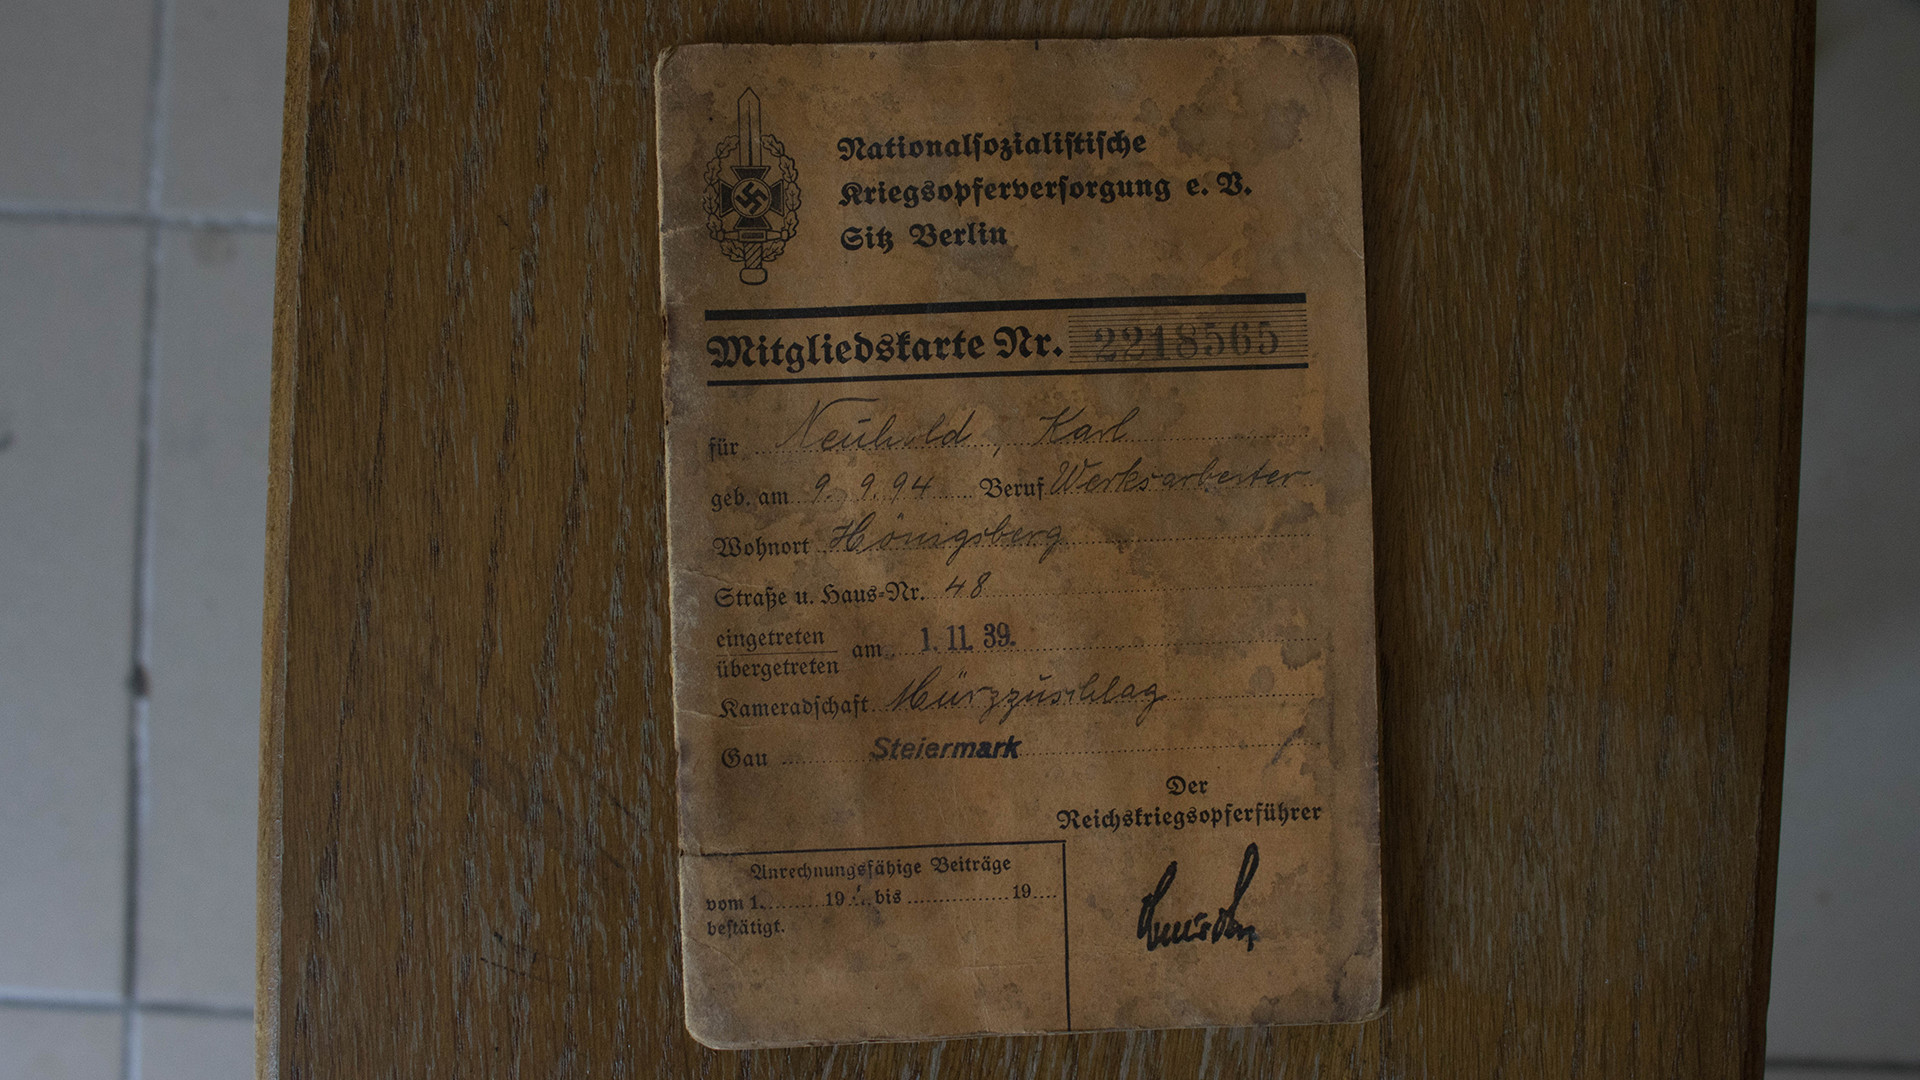 Nationalsozialistische
Kriegsopferversorgung e. V.
Sitz Berlin
Mitgliedskarte Nr. 2218565
für Neuhold, Karl
geb. am 9. 9. 94 Beruf Werksarbeiter
Wohnort Hönigsberg
Straße u. Haus-Nr. 48
eingetreten
übergetreten am 1. 11. 39.
Kameradschaft Mürzzuschlag
Gau Steiermark
Der
Reichskriegsopferführer
Anrechnungsfähige Beiträge
vom 1. 19 bis 19
bestätigt.